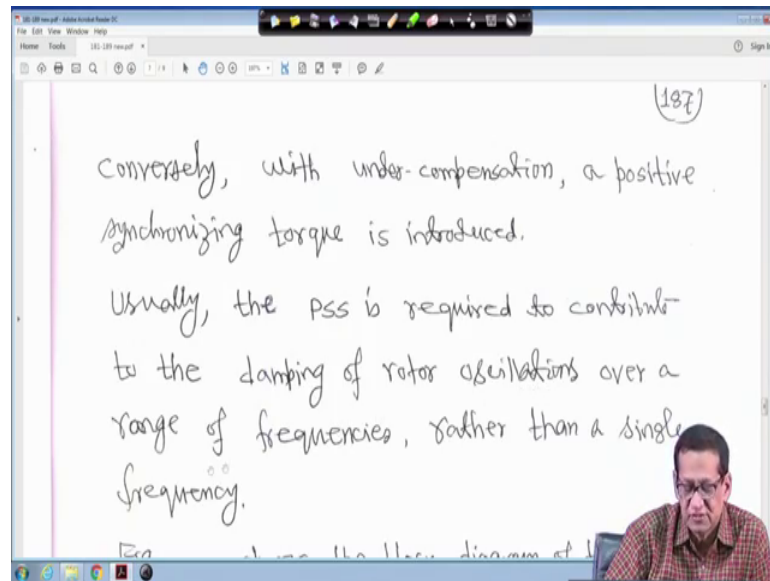 181-189 new.pdf - Adobe Acrobat Reader DC
File Edit View Window Help
Home Tools 181-189 new.pdf × Sign In
187
Conversely, with under-compensation, a positive
synchronizing torque is introduced.
Usually, the PSS is required to contribut
to the damping of rotor oscillations over a
range of frequencies, rather than a single
frequency.